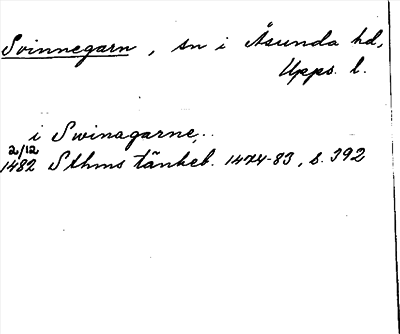 Svinnegarn, sn i Åsunda hd,
Upps. l.
i Swinagarne..
2/12
1482 Sthms tänkeb. 1474-83, s. 392